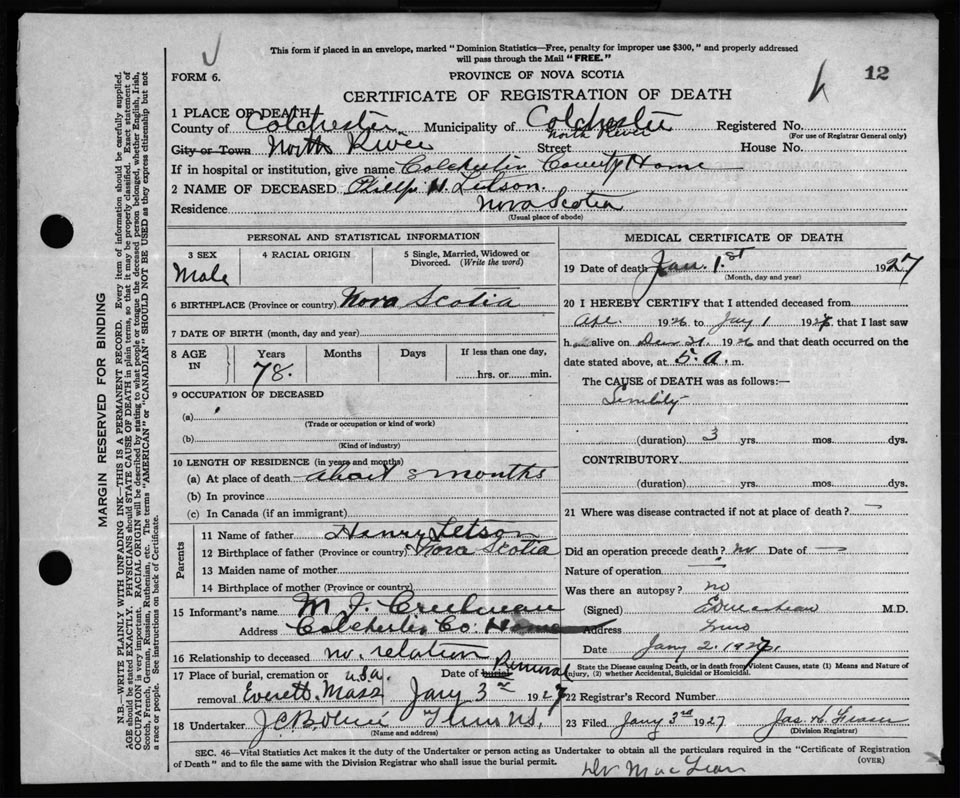 This form if placed in an envelope, marked "Dominion Statistics—Free, penalty for improper use $300," and properly addressed
will pass through the Mail "FREE."
FORM 6.
PROVINCE OF NOVA SCOTIA
12
CERTIFICATE OF REGISTRATION OF DEATH
1 PLACE OF DEATH
County of Colchester Municipality of Colchester Registered No.
North River
(For use of Registrar General only)
City or Town North River Street House No.
If in hospital or institution, give name Colchester County Home
2 NAME OF DECEASED Phillip H. Letson.
Residence Nova Scotia
(Usual place of abode)
PERSONAL AND STATISTICAL INFORMATION
3 SEX 4 RACIAL ORIGIN 5 Single, Married, Widowed or
Divorced. (Write the word)
Male
6 BIRTHPLACE (Province or country) Nova Scotia
7 DATE OF BIRTH (month, day and year)
8 AGE IN Years Months Days If less than one day,
78. hrs. or min.
9 OCCUPATION OF DECEASED
(a)
(Trade or occupation or kind of work)
(b)
(Kind of industry)
10 LENGTH OF RESIDENCE (in years and months)
(a) At place of death about 8 months
(b) In province
(c) In Canada (if an immigrant)
Parents
11 Name of father Henry Letson
12 Birthplace of father (Province or country) Nova Scotia
13 Maiden name of mother
14 Birthplace of mother (Province or country)
15 Informant's name M. J. Creelman
Address Colchester Co. Home
16 Relationship to deceased no relation
17 Place of burial, cremation or U.S.A. Date of burial Removal
removal Everett, Mass Jany 3rd 1927
18 Undertaker J.C.B. Truro N.S.
(Name and address)
MEDICAL CERTIFICATE OF DEATH
19 Date of death Jan. 1st 1927
(Month, day and year)
20 I HEREBY CERTIFY that I attended deceased from
Apl. 1926 to Jany 1 1927, that I last saw
h alive on Dec 31, 1926 and that death occurred on the
date stated above, at 5. A. m.
The CAUSE of DEATH was as follows:—
Senility
(duration) 3 yrs. mos. dys.
CONTRIBUTORY.
(duration) yrs. mos. dys.
21 Where was disease contracted if not at place of death? —
Did an operation precede death? no Date of —
Nature of operation —
Was there an autopsy? no
(Signed) M.D.
Address Truro
Date Jany 2. 1927
State the Disease causing Death, or in death from Violent Causes, state (1) Means and Nature of
Injury, (2) whether Accidental, Suicidal or Homicidal.
22 Registrar's Record Number
23 Filed Jany 3rd 1927. Jas. H. Fraser
(Division Registrar)
SEC. 46—Vital Statistics Act makes it the duty of the Undertaker or person acting as Undertaker to obtain all the particulars required in the "Certificate of Registration
of Death" and to file the same with the Division Registrar who shall issue the burial permit.
(OVER)
Dr MacLean
MARGIN RESERVED FOR BINDING
N.B.—WRITE PLAINLY WITH UNFADING INK—THIS IS A PERMANENT RECORD. Every item of information should be carefully supplied.
AGE should be stated EXACTLY. PHYSICIANS should STATE CAUSE OF DEATH in plain terms, so that it may be properly classified. Exact statement of
OCCUPATION is very important. RACIAL ORIGIN will be described by stating to what people or tongue the deceased person belonged, whether English, Irish,
Scotch, French, German, Russian, Ruthenian, etc. The terms "AMERICAN" or "CANADIAN" SHOULD NOT BE USED as they express citizenship but not
a race or people. See instructions on back of Certificate.